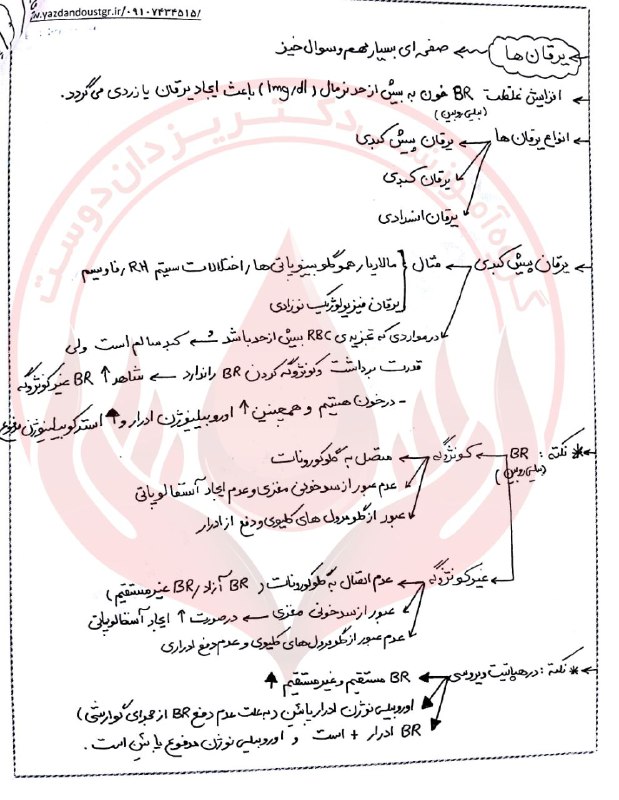 w.yazdandoustgr.ir/09107434515/
یرقان ها ← صفحه ای بسیار مهم و سوال خیز
افزایش غلظت BR خون به بیش از حد نرمال (1mg/dl) باعث ایجاد یرقان یا زردی می گردد.
(بیلی روبین)
انواع یرقان ها ← یرقان پیش کبدی
یرقان کبدی
یرقان انسدادی
یرقان پیش کبدی ← مثال { مالاریا، هموگلوبینوپاتی ها، اختلالات سیتم RH، فاویسم
یرقان فیزیولوژیک نوزادی
در مواردی که تجزیه ی RBC بیش از حد باشد ← کبد سالم است ولی
قدرت برداشت و کونژوگه کردن BR را ندارد ← شاهد ↑ BR غیر کونژوگه
- در خون هستیم و همچنین ↑ اوروبیلینوژن ادرار و ↑ استرکوبیلینوژن مدفوع
* نکته : BR ← کونژوگه ← متصل به گلوکورونات
(بیلی روبین)
عدم عبور از سد خونی مغزی و عدم ایجاد آنسفالوپاتی
عبور از گلومرول های کلیوی و دفع از ادرار
غیر کونژوگه ← عدم اتصال به گلوکورونات (BR آزاد / BR غیر مستقیم)
عبور از سد خونی مغزی ← در صورت ↑ ایجاد آنسفالوپاتی
عدم عبور از گلومرول های کلیوی و عدم دفع ادراری
* نکته : در هپاتیت ویروسی ← BR مستقیم و غیر مستقیم ↑
اوروبیلی نوژن ادرار پایین (به علت عدم دفع BR از مجرای گوارشی)
BR ادرار + است و اوروبیلی نوژن مدفوع پایین است.
گروه آموزشی دکتر یزدان دوست